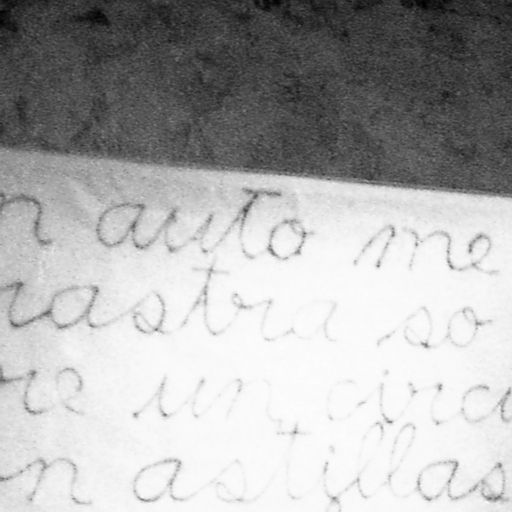 n auto me
rastra so
re un circu
n astillas